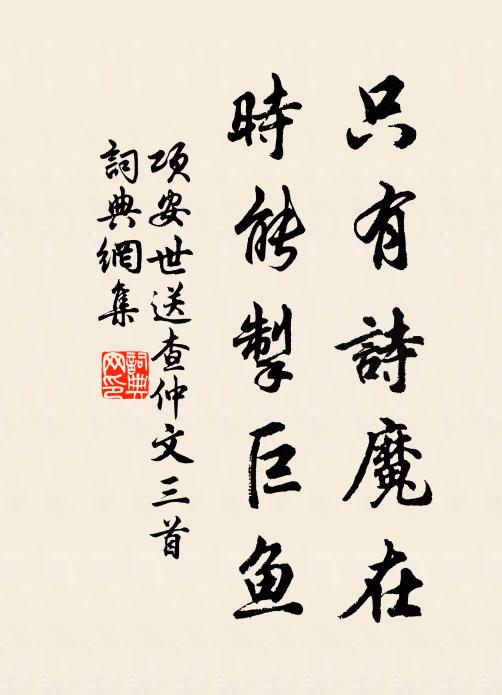 只有詩魔在
時能掣巨鱼
項安世送查仲文三首
詞典網集
詞典网印